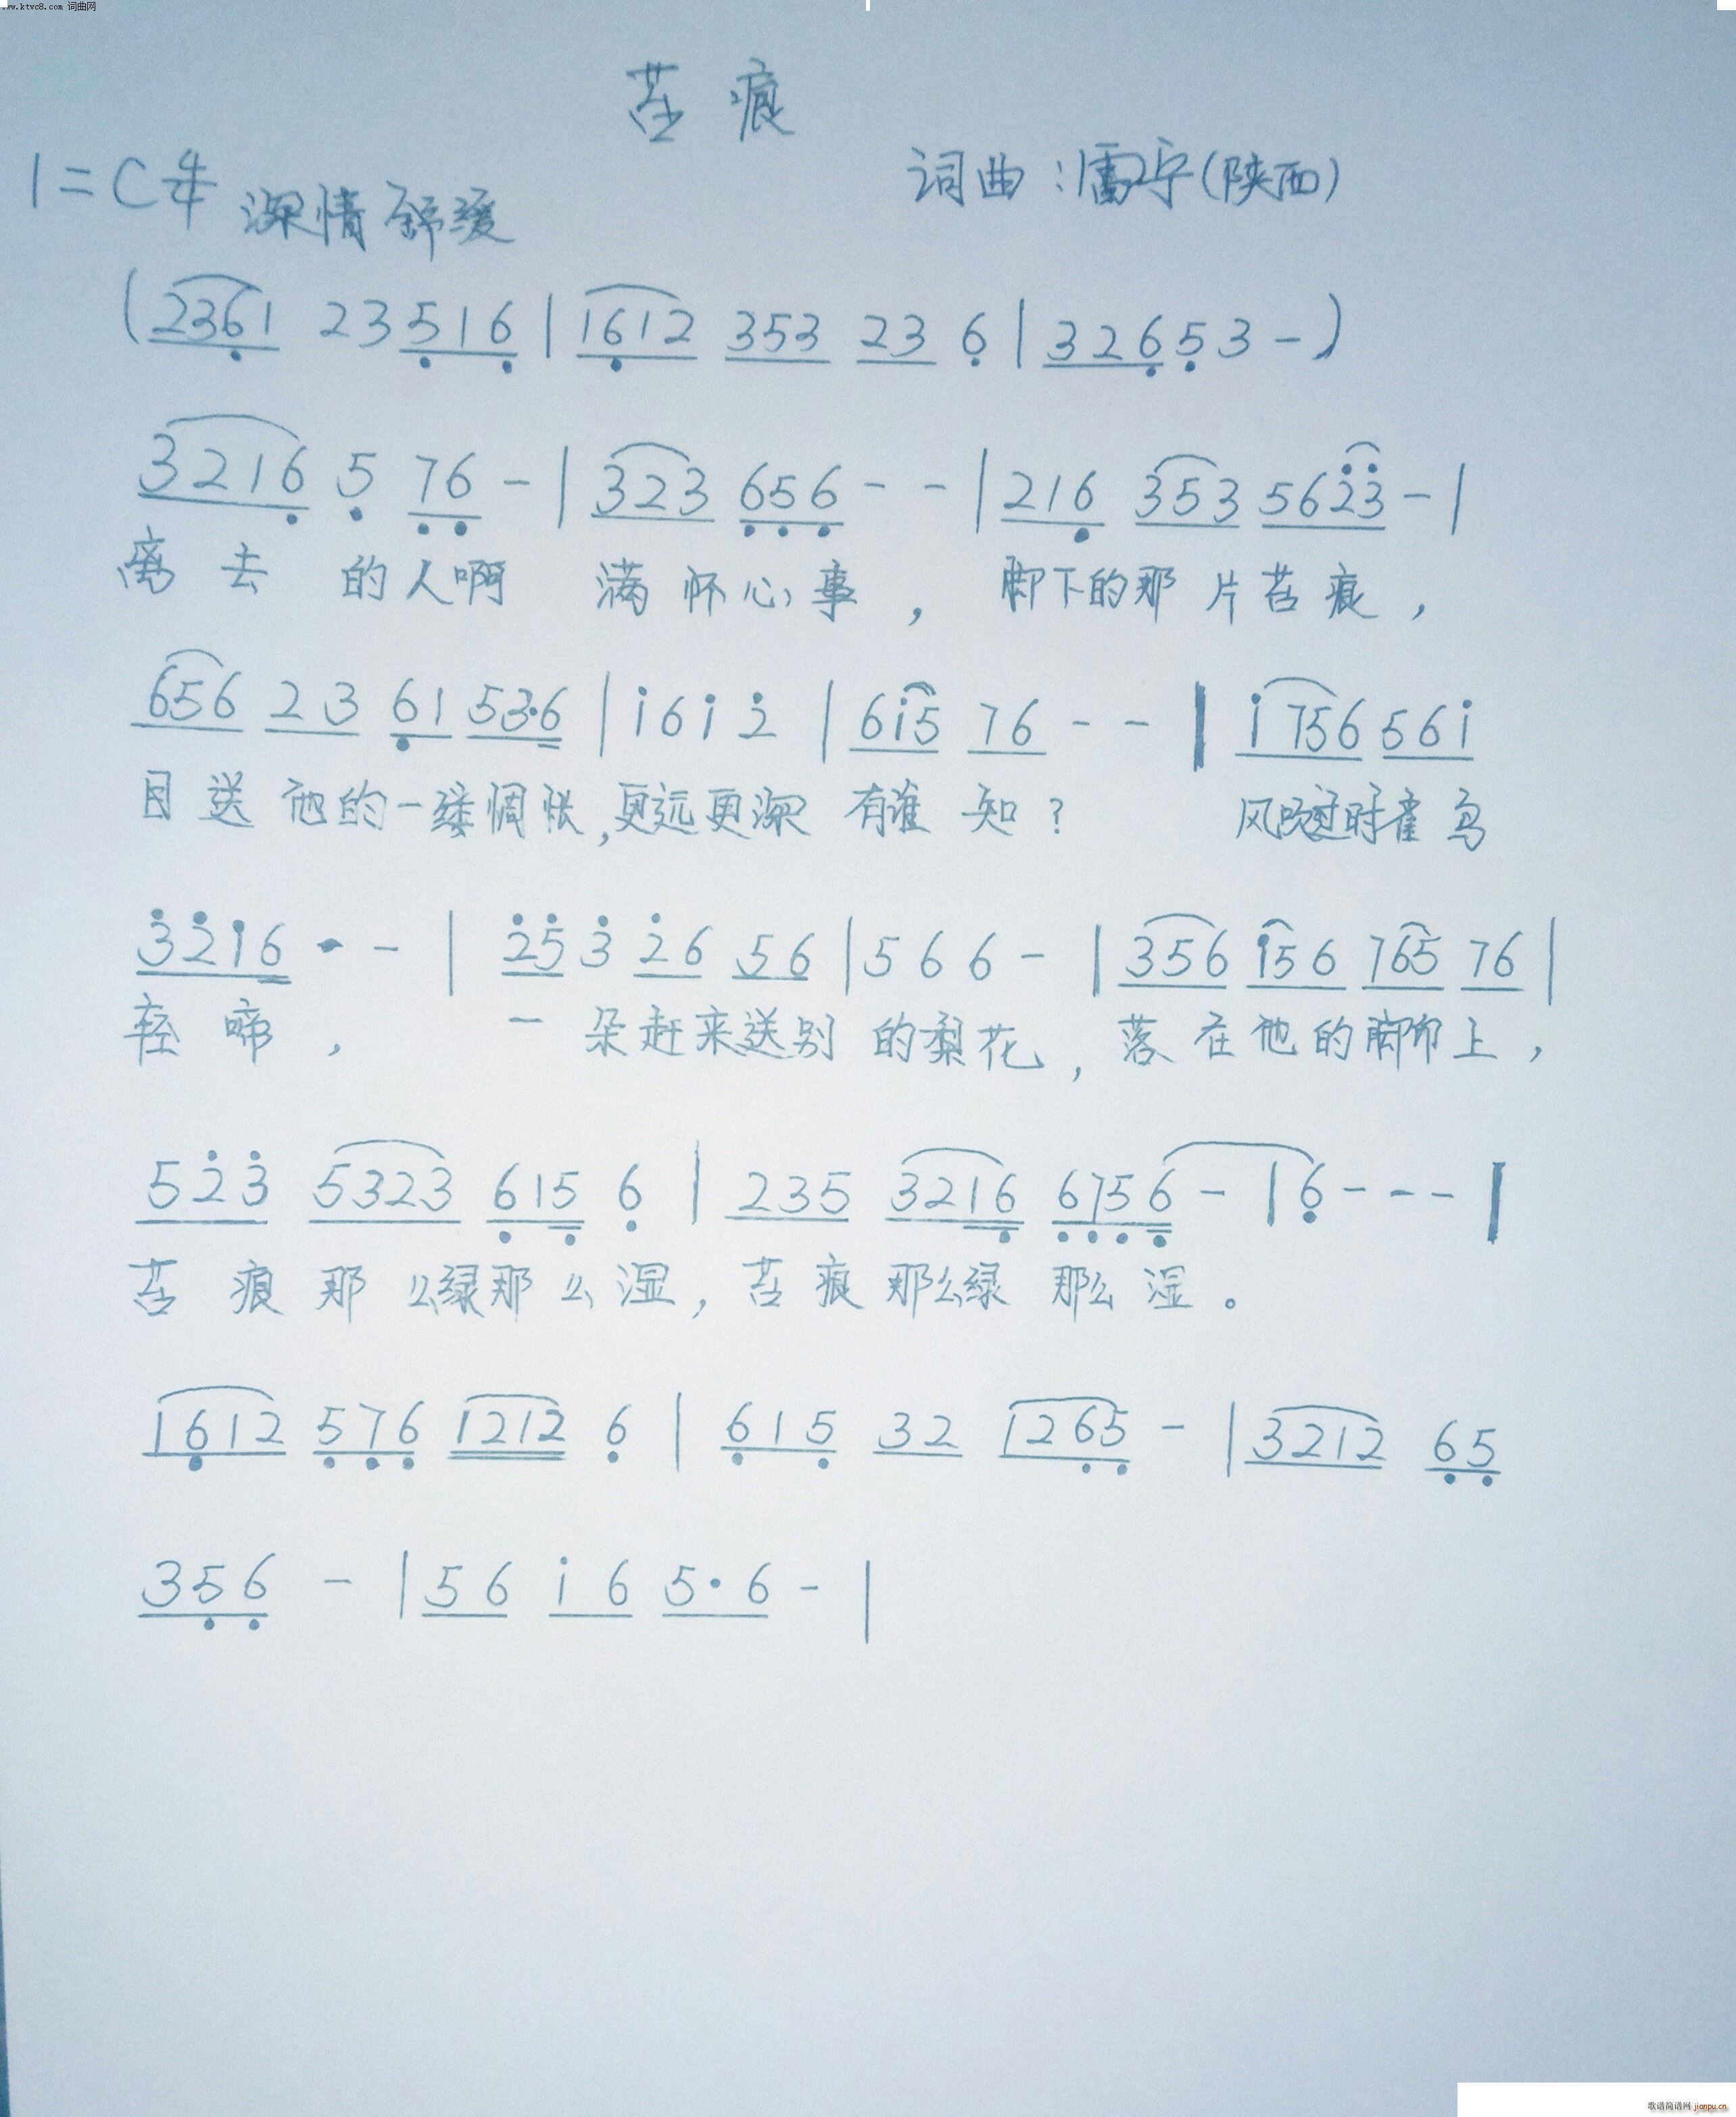 www.ktvc8.com 词曲网
苔痕
1=C 4/4 深情 舒缓
词曲:雷宁(陕西)
(2361 23516|1612 353 23 6|32653-)
3216 5 76 -|323 656 - -|216 353 5623 -|
离去的人啊 满怀心事, 脚下的那片苔痕,
656 23 61 53·6|i6i2|6i5 76 - -|i756 56i
目送他的一缕惆怅,更远更深 有谁知? 风吹过时雀鸟
3216 · -|253 26 56|566 -|356 i56 765 76|
轻啼, 一朵赶来送别的梨花,落在他的脚印上,
523 5323 615 6|235 3216 6756 -|6 - - -|
苔痕那么绿那么湿,苔痕那么绿 那么湿。
1612 576 1212 6|615 32 1265 -|3212 65
356 -|56 i6 5·6 -|
歌谱简谱网 jianpu.cn